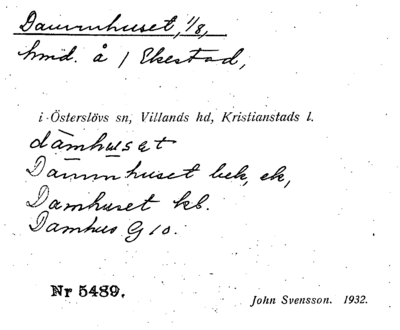 Dammhuset, 1/8,
hmd. å 1 Ekestad,
i Österslövs sn, Villands hd, Kristianstads l.
dāmhusət
Dammhuset bek, ek,
Damhuset kb.
Damhus G 10.
Nr 5489.
John Svensson. 1932.